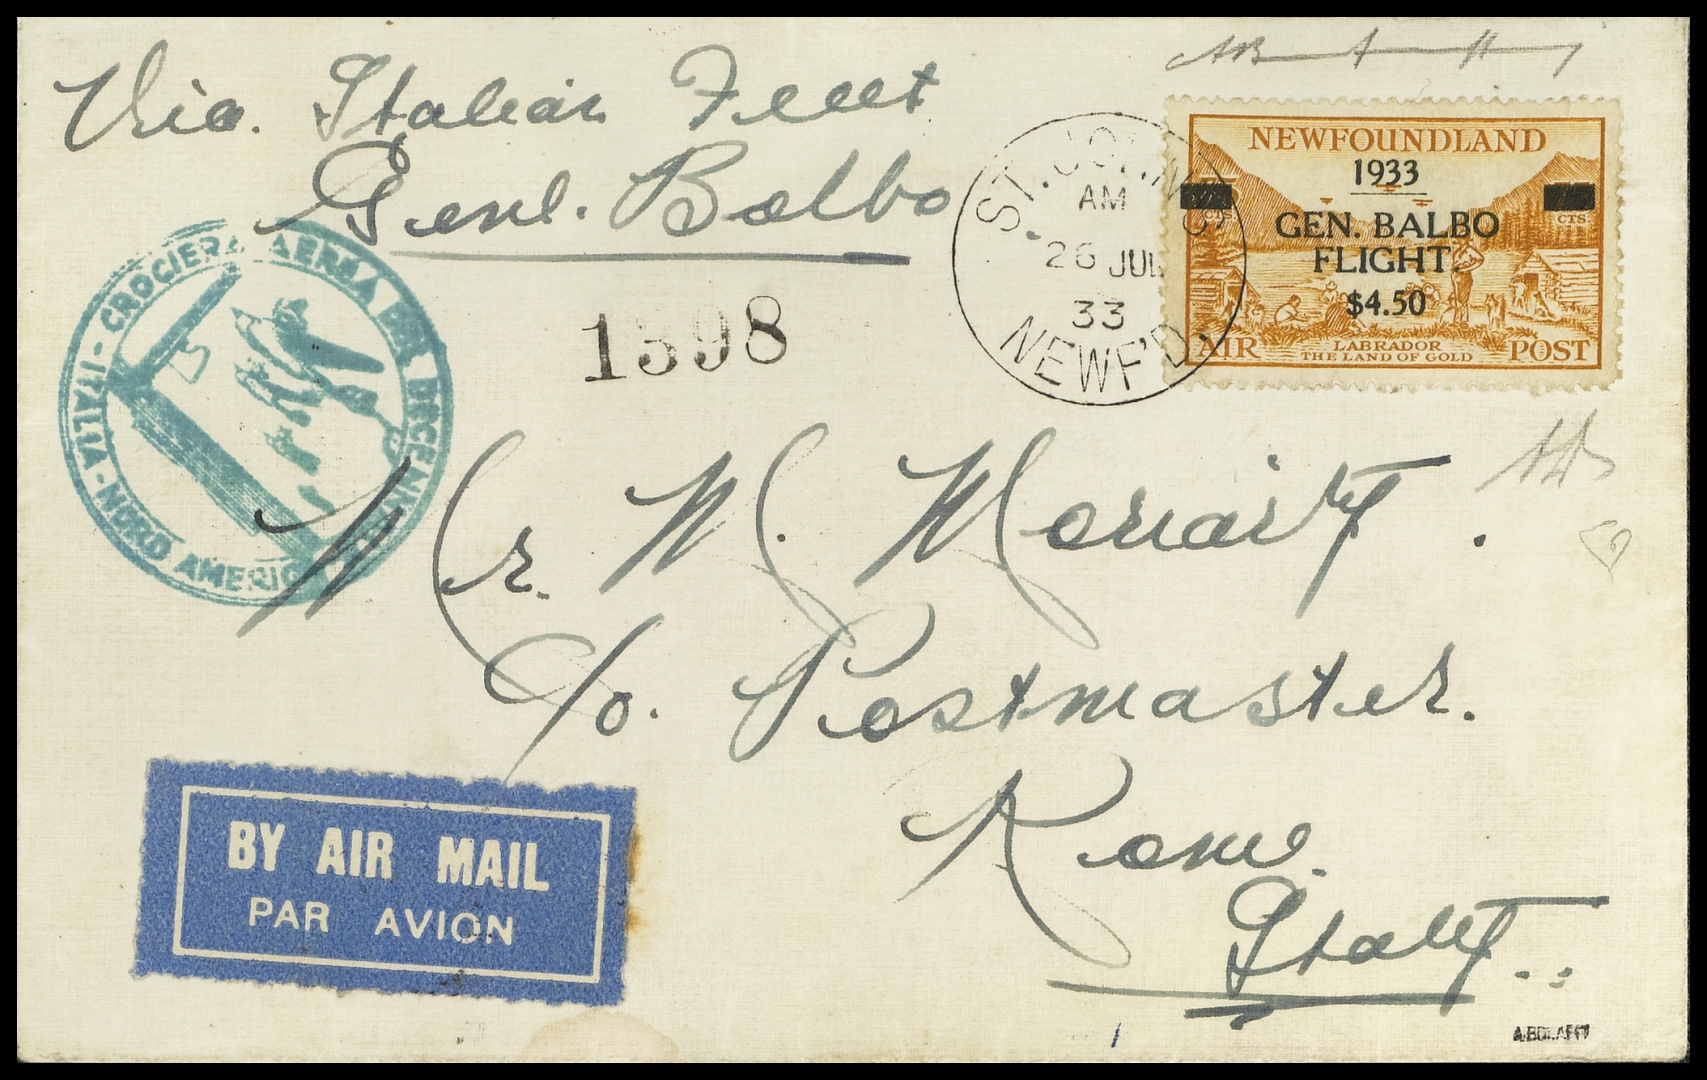 Via. Italian Fleet
Genl. Balbo
CROCIERA AEREA DEL DECENNALE
ITALIA - NORD AMERICA
1398
ST. JOHN'S
AM
26 JUL
33
NEWF'D.
NEWFOUNDLAND
1933
GEN. BALBO
FLIGHT.
$4.50
CTS
AIR
LABRADOR
THE LAND OF GOLD
POST
Mr. W. J. Moriarty.
C/o. Postmaster.
Rome.
Italy..
BY AIR MAIL
PAR AVION
A.BOLAFFI